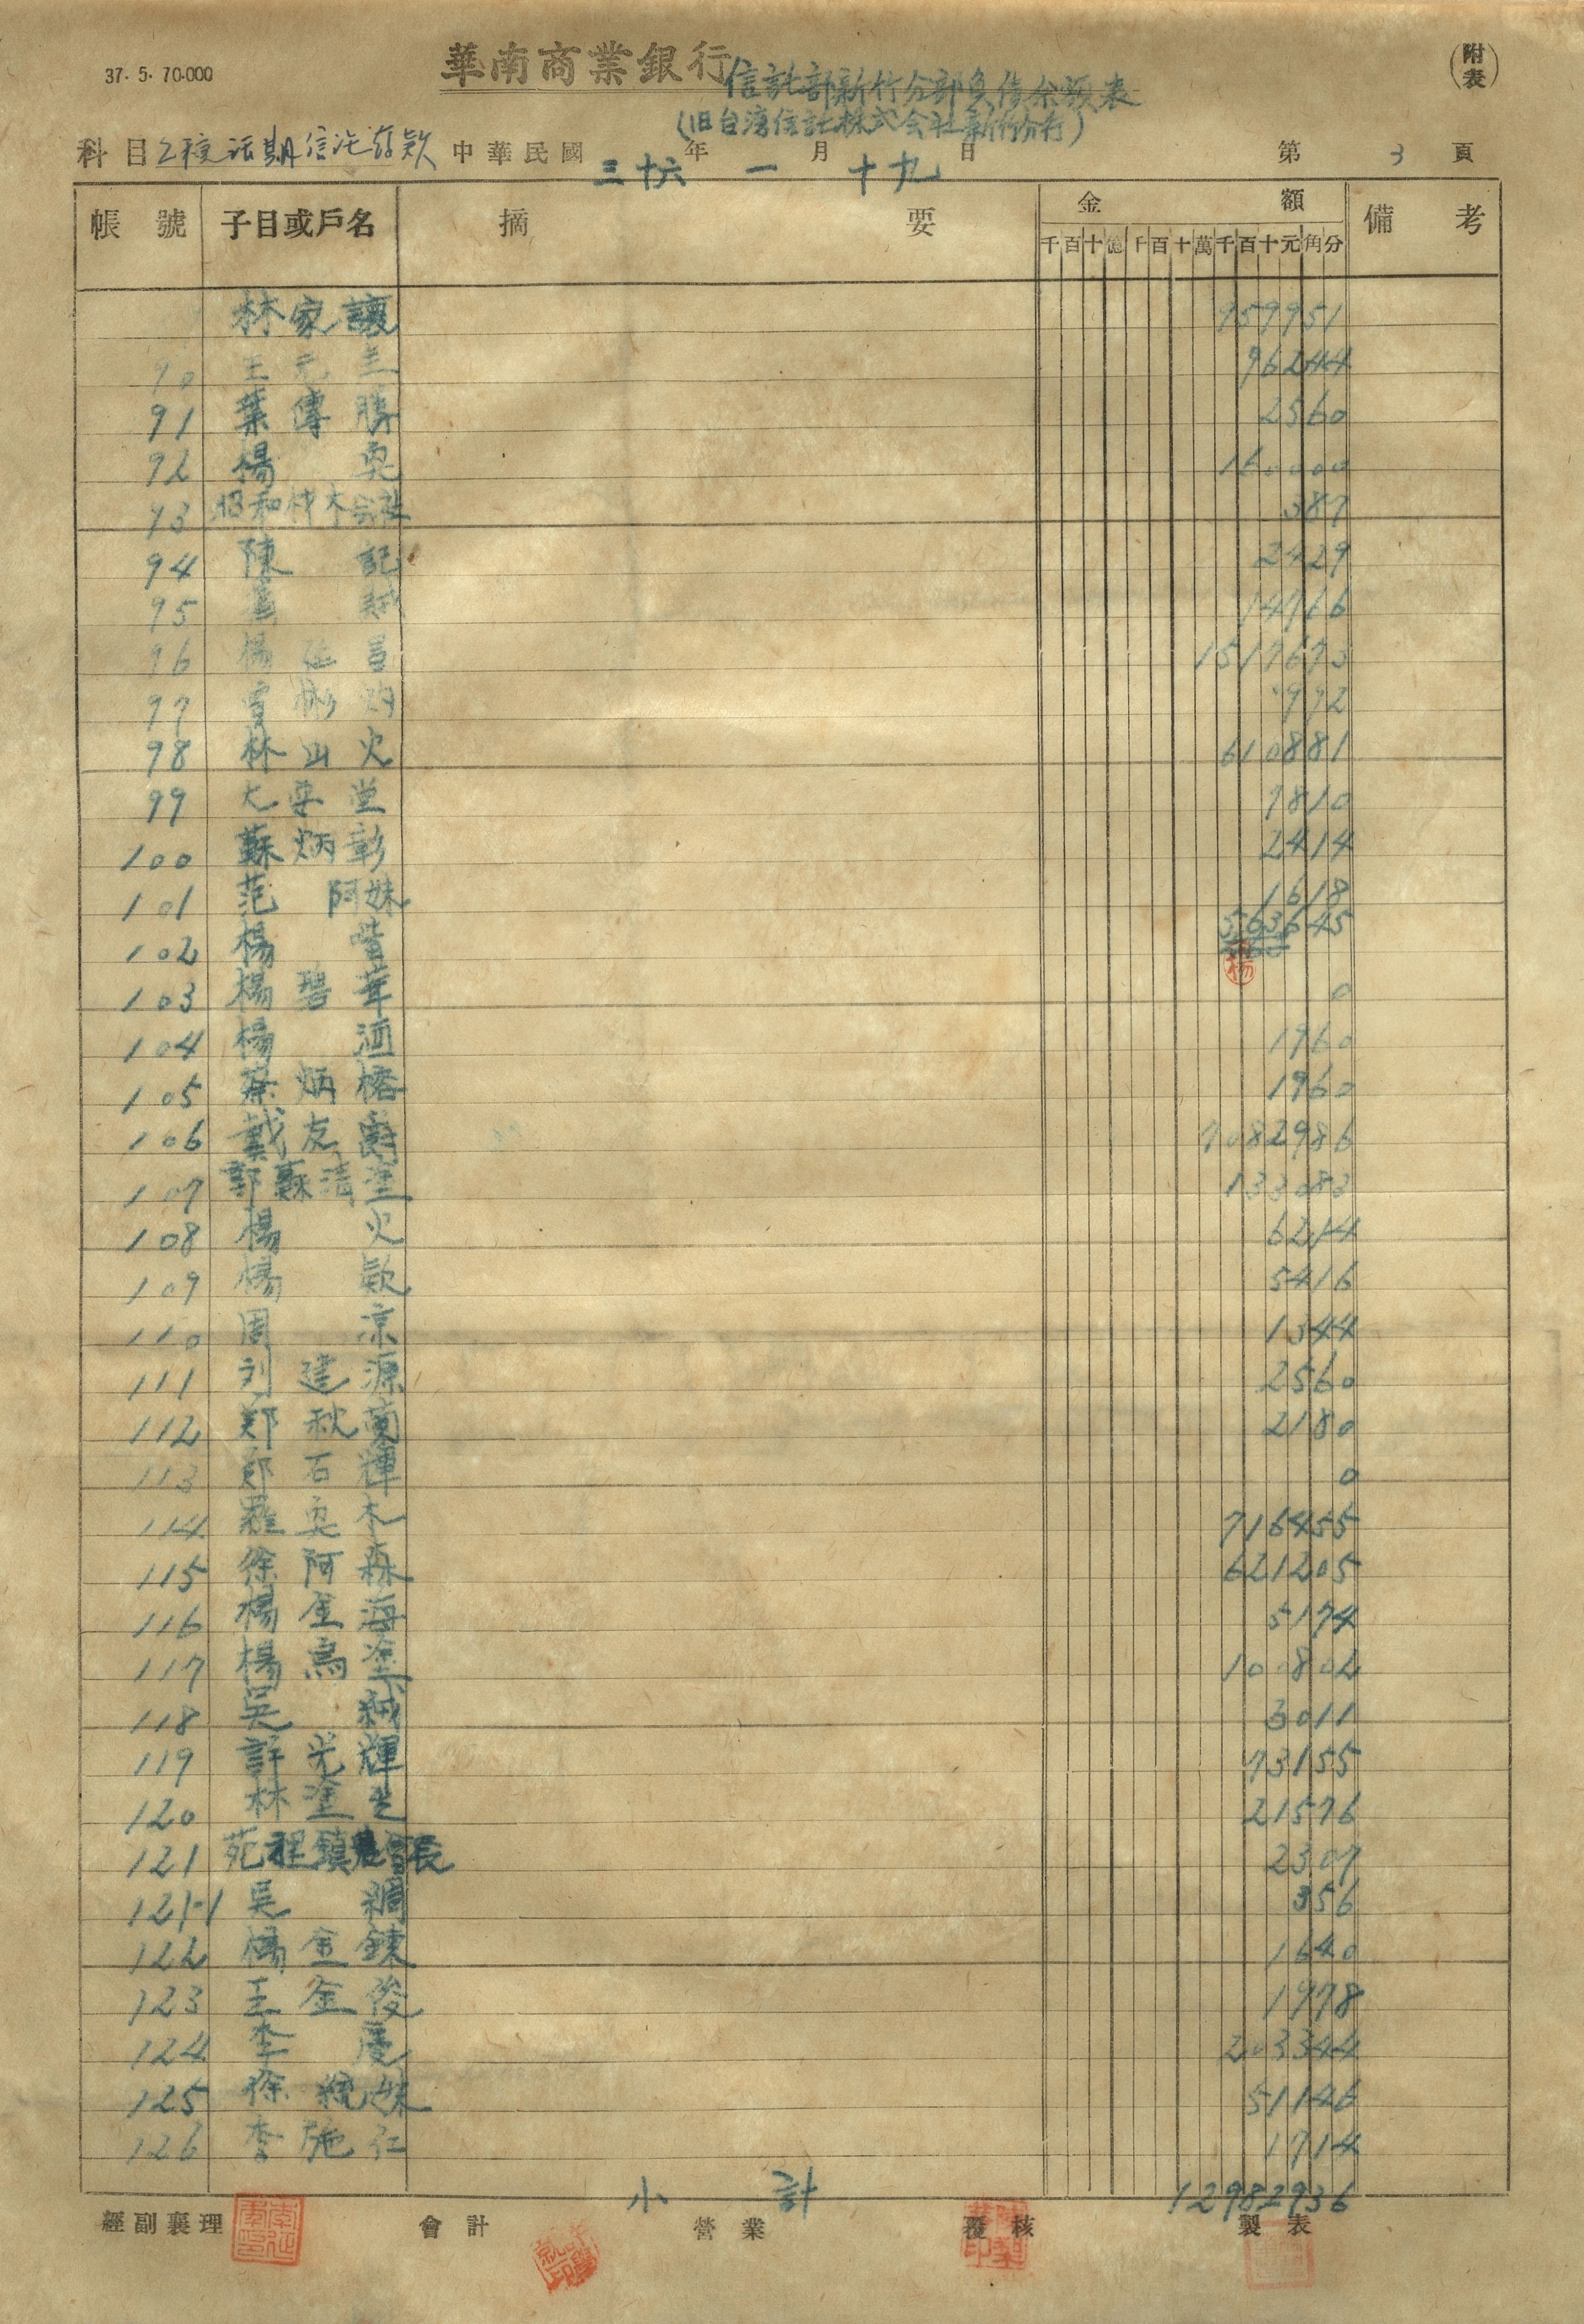 37. 5. 70.000
華南商業銀行 信託部新竹分部負債余額表
(附表)
(旧台湾信託株式会社新竹分行)
科目 乙種活期信託存款 中華民國 三十六 年 一 月 十九 日 第 3 頁
帳號 子目或戶名 摘要 金額 備考
千百十億千百十萬千百十元角分
林家讓 959951
90 王元 96244
91 葉傳勝 2560
92 楊 160000
93 昭和材木会社 387
94 陳記 2429
95 14966
96 楊 1517673
97 曾 992
98 林山火 610881
99 堂 9810
100 蘇炳彰 2414
101 范阿妹 1618
102 楊 563645
103 楊碧華 0
104 楊 1960
105 蔡炳榕 1960
106 戴友 7082986
107 郭蘇清塗 133083
108 楊火 6214
109 楊欵 5416
110 周涼 1344
111 刘建源 2560
112 鄭秋菊 2180
113 鄭石輝 0
114 羅木 716455
115 徐阿森 621205
116 楊金海 5174
117 楊烏塗 100802
118 吳 3011
119 許光輝 73155
120 林塗 21576
121 苑裡鎮農會長 2307
121-1 吳 356
122 楊金鍊 1640
123 王金俊 1978
124 李 203344
125 徐妹 51146
126 李施仁 1714
小計 12982936
經副襄理 會計 營業 覆核 製表